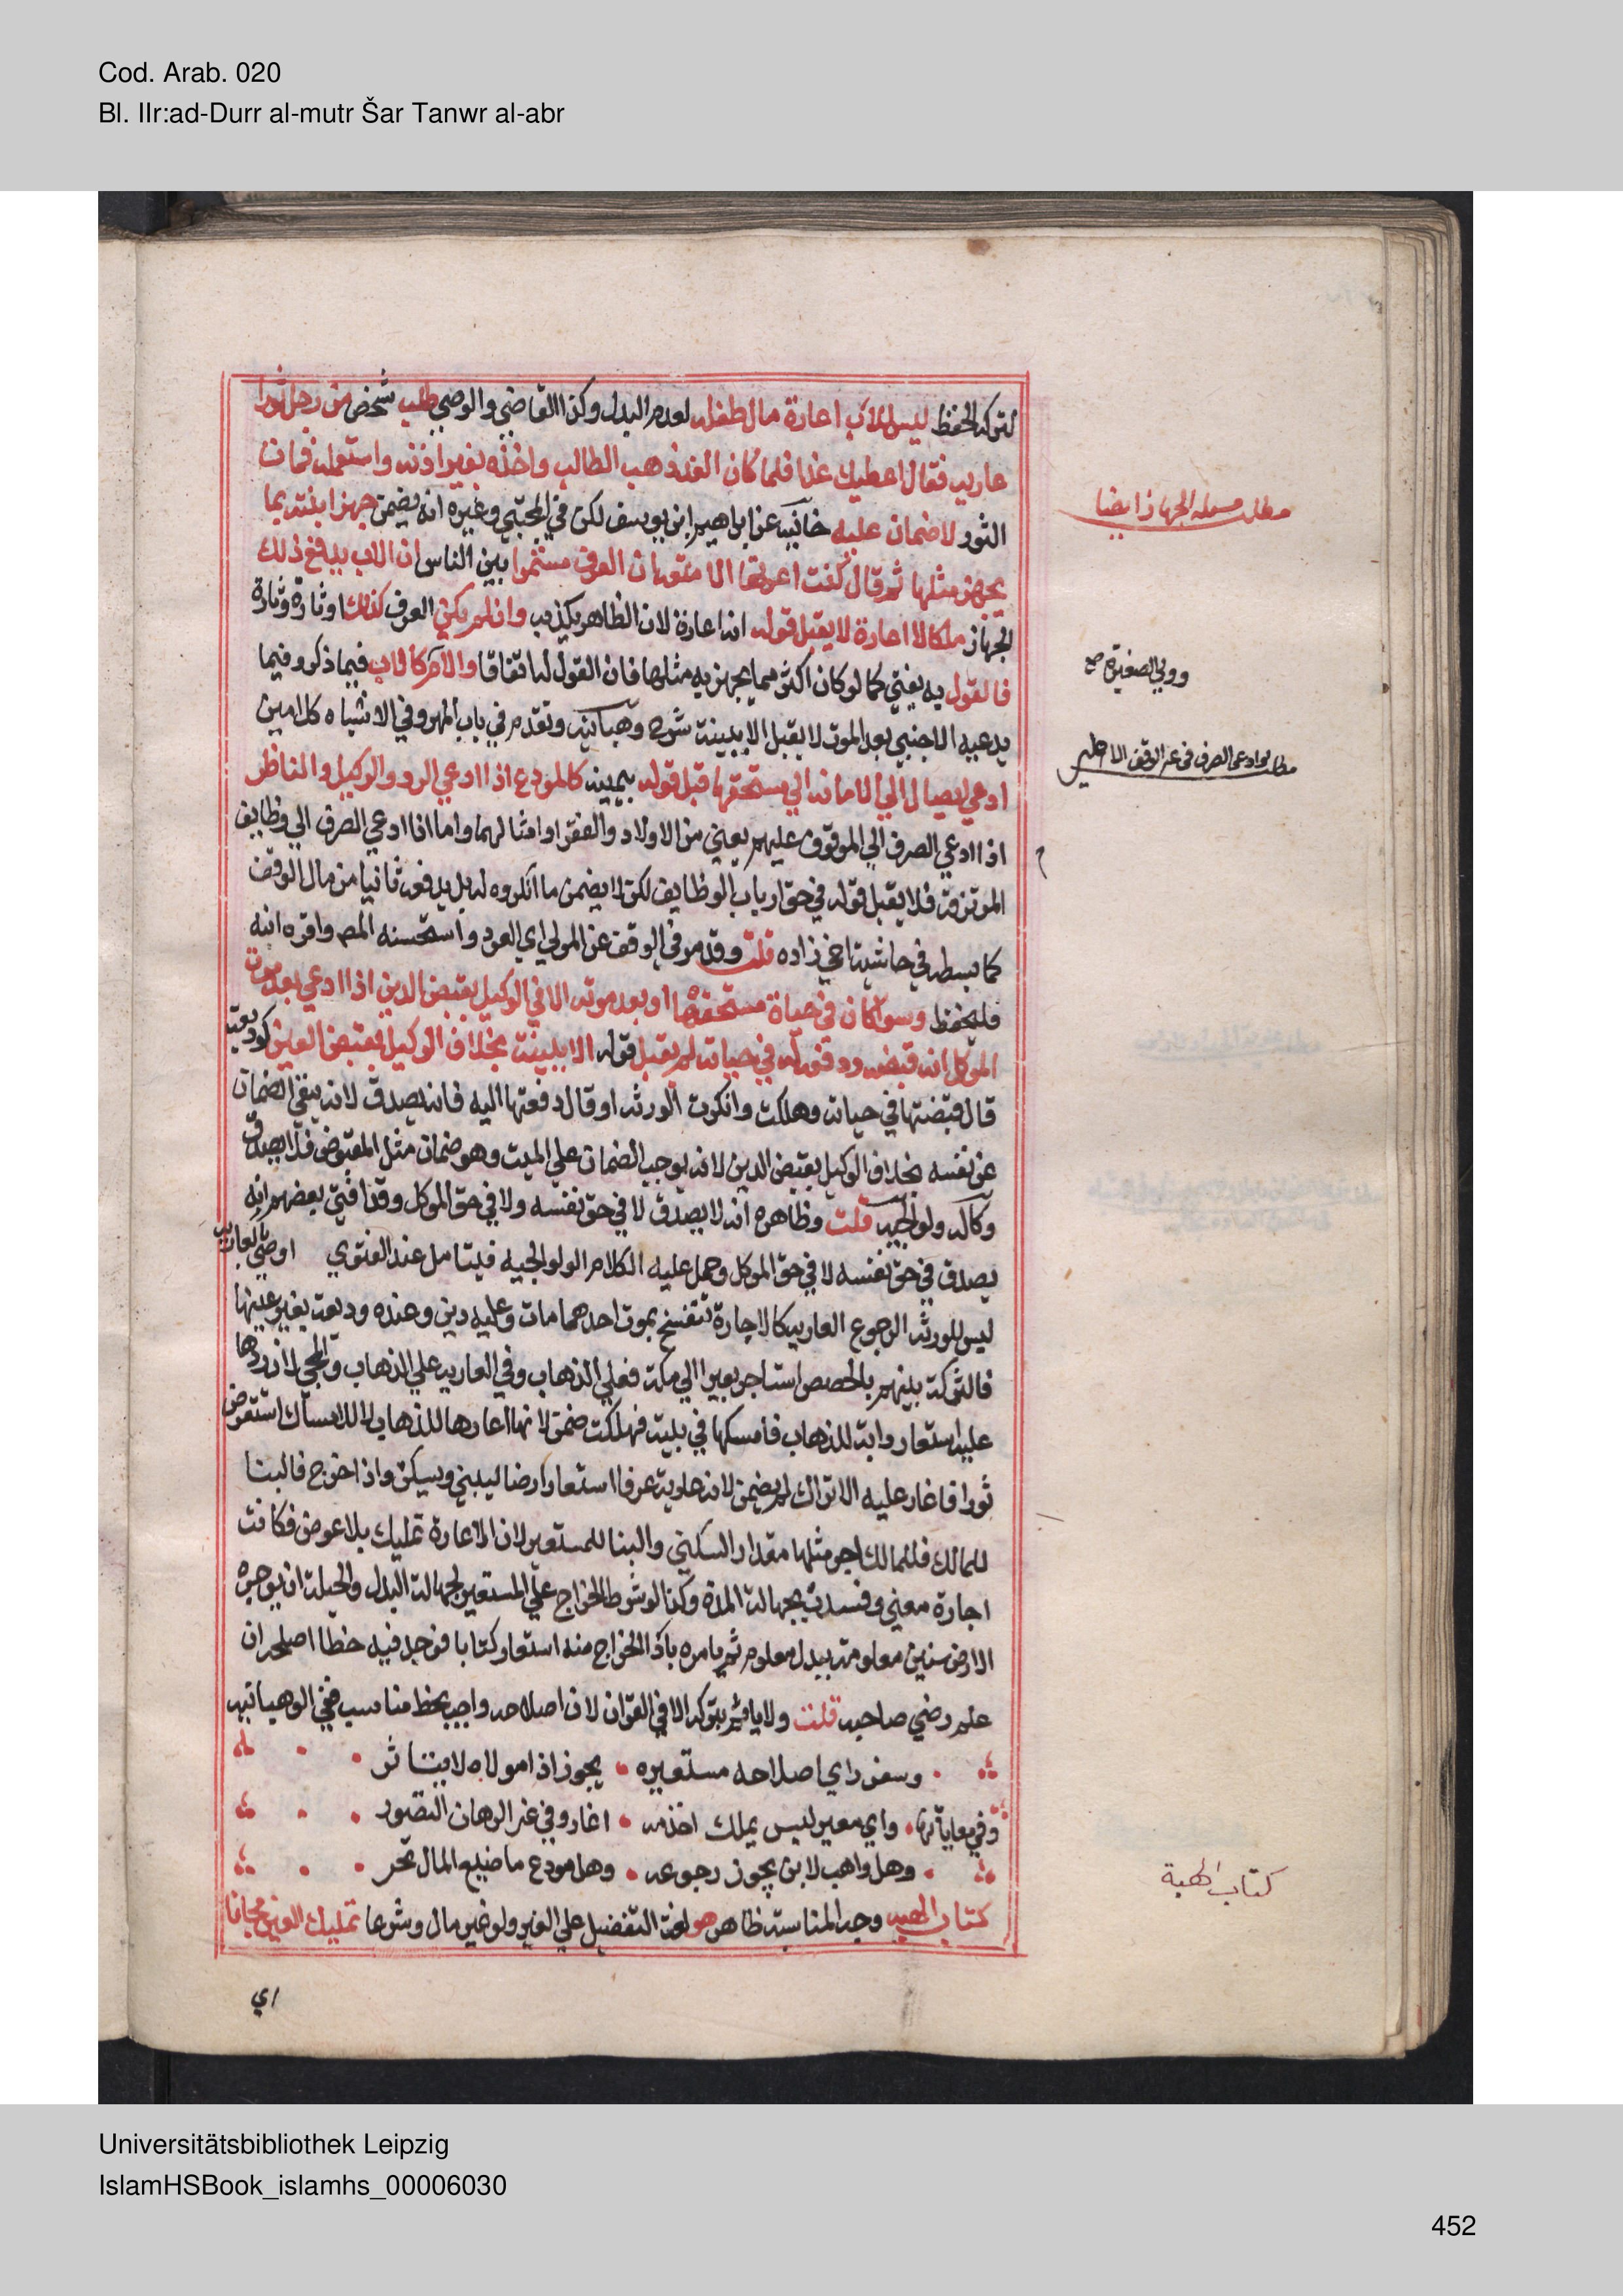 Cod. Arab. 020
Bl. IIr:ad-Durr al-mutr Šar Tanwr al-abr
لتركه الحفظ ليس للاب اعارة مال طفله لعدم البدل وكذا القاضي والوصي طلب شخص من رجل ثورا
عارية فقال اعطيك غدا فلما كان الغد ذهب الطالب واخذه بغير اذنه واستعمله فمات
الثور لا ضمان عليه خانيه عن ابراهيم ابن يوسف لكن في المجتبي وغيره انه يضمن جهز ابنته بما
يجهز مثلها ثم قال كنت اعرتها الامتعة ان العرف مستمرا بين الناس ان الاب يدفع ذلك
الجهاز ملكا لا اعارة لا يقبل قوله انه اعارة لان الظاهر يكذبه وان لم يكن العرف كذلك او تارة وتارة
فالقول به يفتي كما لو كان اكثر مما يجهز به مثلها فان القول له اتفاقا والام كالاب فيما ذكر وفيما
يدعيه الاجنبي بعد الموت لا يقبل الا ببينة شرح وهبانيه وتقدم في باب المهر وفي الاشباه كل امين
ادعي ايصال الي الامانه الي مستحقها قبل قوله بيمينه كالمودع اذا ادعي الرد والوكيل والناظر
اذا ادعي الصرف الي الموقوف عليهم يعني من الاولاد والفقرا وامثالهما واما اذا ادعي الصرف الي وظايف
المرتزقة فلا يقبل قوله في حق ارباب الوظايف لكن لا يضمن ما انكروه له بل يدفعه ثانيا من مال الوقف
كما بسطه في حاشية اخي زاده قلت وقد مر في الوقف عن المولي ابي العود واستحسنه المص واقره ابنه
فليحفظ وسوا كان في حياة مستحقها او بعد موته الا في الوكيل بقبض الدين اذا ادعي بعد موت
الموكل انه قبضه ودفعه له في حياته لم يقبل قوله الا ببينة بخلاف الوكيل بقبض العين كوديعة
قال قبضتها في حياته وهلكت وانكرت الورثه او قال دفعتها اليه فانه يصدق لانه ينفي الضمان
عن نفسه بخلاف الوكيل بقبض الدين لانه يوجب الضمان علي الميت وهو ضمان مثل المقبوض فلا يصدق
وكالة ولوالجيه قلت وظاهره انه لا يصدق لا في حق نفسه ولا في حق الموكل وقد افتي بعضهم انه
يصدق في حق نفسه لا في حق الموكل وحمل عليه الكلام الولوالجيه فيتامل عند الفتوي اوصي بالعارية
ليس للورثه الرجوع العارية كالاجارة تنفسخ بموت احدهما مات وعليه دين وعنده وديعة بغير عينها
فالتركة بينهم بالحصص استاجر بعيرا الي مكة فعلي الذهاب وفي العارية علي الذهاب والمجي لان ردها
عليه استعار دابة للذهاب فامسكها في بيته فهلكت ضمن لانها اعارها للذهاب لا للامساك استقرض
ثورا فاغار عليه الاتراك لم يضمن لانه عارية عرفا استعار ارضا ليبني ويسكن واذا اخرج فالبنا
للمالك فللمالك اجر مثلها مقدار السكني والبنا للمستعير لان الاعارة تمليك بلا عوض فكانت
اجارة معني وفسدت بجهالة المدة وكذا لو شرط الخراج علي المستعير لجهالة البدل والحيلة ان يوجره
الارض سنين معلومة ببدل معلوم ثم يامره باد الخراج منه استعار كتابا فوجد فيه خطا اصلحه ان
علم رضي صاحبه قلت ولا ياثم بتركه الا في القران لان اصلاحه واجب بخط مناسب ففي الوهبانيه
وسفر راي اصلاحه مستعيره يجوز اذا مولاه لا يتاثر
وفي معاياتها واي معير ليس يملك اخذه اعار وفي غير الرهان التصور
وهل واهب لابن يجوز رجوعه وهل مودع ما ضيع المال يخسر
كتاب الهبه وجه المناسبة ظاهر هو لغة التفضيل علي الغير ولو غير مال وشرعا تمليك العين مجانا
اي
مطلب مسيله الجهاز ايضا
وولي الصغيرة صح
مطلب لو ادعي الصرف
كتاب الهبة
Universitätsbibliothek Leipzig
IslamHSBook_islamhs_00006030
452